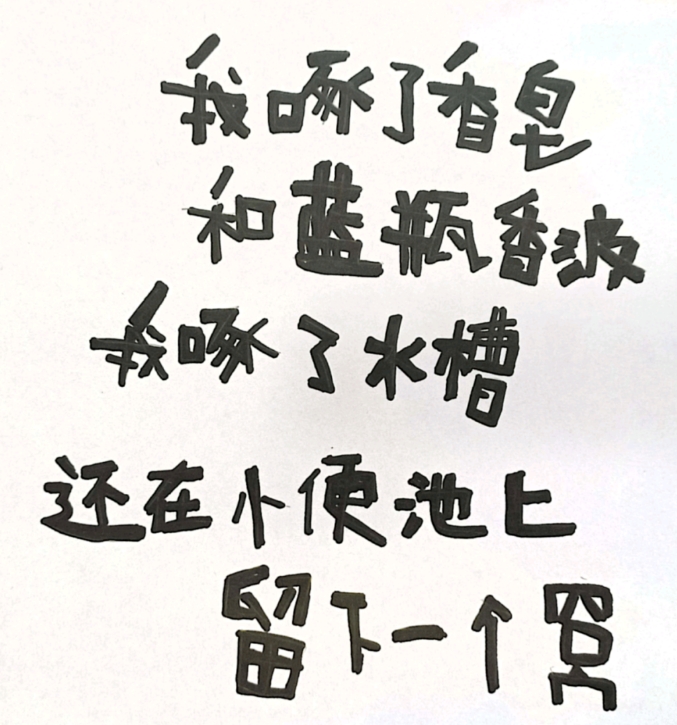 我啄了香皂
和蓝瓶香波
我啄了水槽
还在小便池上
留下一个